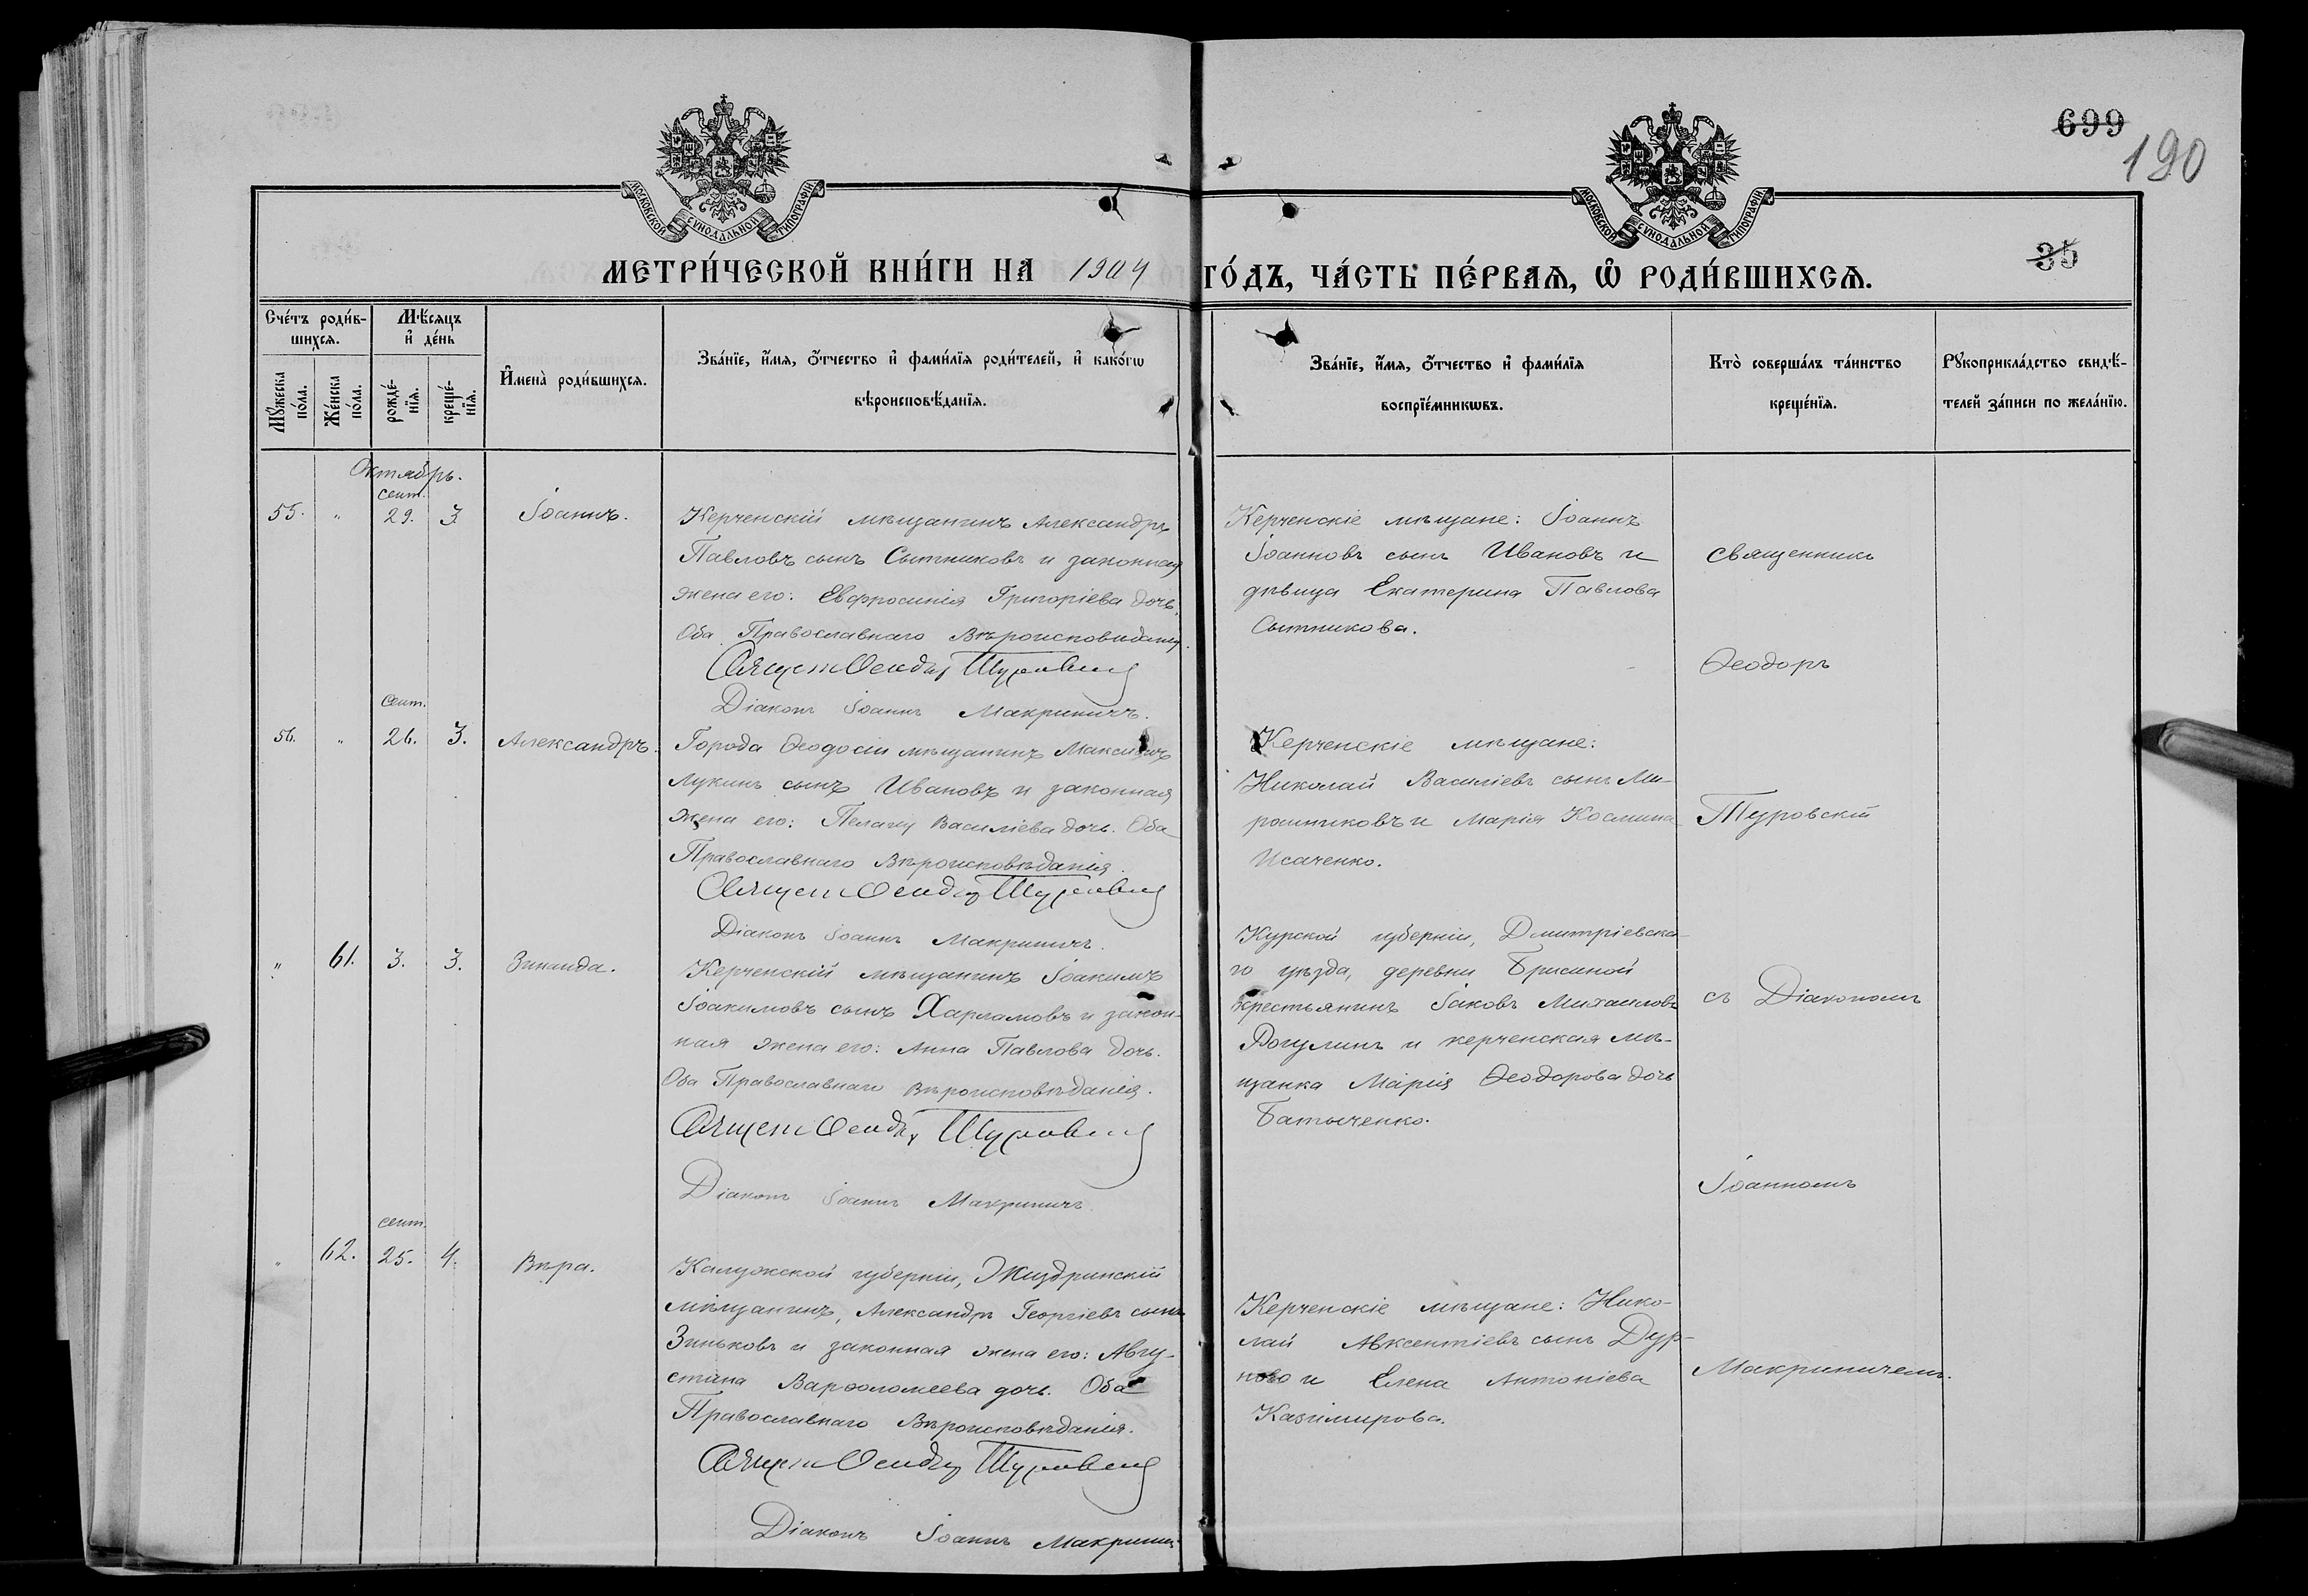 699
190
35
МОСКОВСКОЙ СѴНОДАЛЬНОЙ ТИПОГРАФІИ
МОСКОВСКОЙ СѴНОДАЛЬНОЙ ТИПОГРАФІИ
МЕТРИ́ЧЕСКОЙ КНИ́ГИ НА 1904 ГО́ДЪ, ЧА́СТЬ ПЕ́РВАѦ, Ѡ҆ РОДИ́ВШИХСѦ.
Сче́тъ роди́в-
шихсѧ.
Мѣ́сѧцъ
и҆ де́нь
Мꙋ́жеска
по́ла.
Же́нска
по́ла.
рожде́-
нїѧ.
креще́-
нїѧ.
И҆мена̀ роди́вшихсѧ.
Зва́нїе, и҆́мѧ, ѻ҆́тчество и҆ фами́лїѧ роди́телей, и҆ како́гѡ
вѣроисповѣ́данїѧ.
Зва́нїе, и҆́мѧ, ѻ҆́тчество и҆ фами́лїѧ
воспрїе́мникѡвъ.
Кто̀ соверша́лъ та́инство
креще́нїѧ.
Рꙋкоприкла́дство свидѣ́-
телей за́писи по жела́нїю.
Октябрь.
сент.
55. " 29. 3. Іоаннъ.
Керченскій мѣщанинъ Александръ
Павловъ сынъ Сытниковъ и законная
жена его: Евфросинія Григоріева дочь.
Оба Православнаго Вѣроисповѣданія.
Священ Ѳеодоръ Туровскій
Діаконъ Іоаннъ Макриничъ.
Керченскіе мѣщане: Іоаннъ
Іоанновъ сынъ Ивановъ и
дѣвица Екатерина Павлова
Сытникова.
сент.
56. " 26. 3. Александръ.
Города Ѳеодосіи мѣщанинъ Максимъ
Лукинъ сынъ Ивановъ и законная
жена его: Пелагія Василіева дочь. Оба
Православнаго Вѣроисповѣданія.
Священ Ѳеодоръ Туровскій
Діаконъ Іоаннъ Макриничъ.
Керченскіе мѣщане:
Николай Василіевъ сынъ Ми-
рошниковъ и Марія Космина
Исаченко.
" 61. 3. 3. Зинаида.
Керченскій мѣщанинъ Іоакимъ
Іоакимовъ сынъ Харламовъ и закон-
ная жена его: Анна Павлова дочь.
Оба Православнаго Вѣроисповѣданія.
Священ Ѳеодоръ Туровскій
Діаконъ Іоаннъ Макриничъ.
Курской губерніи, Дмитріевска-
го уѣзда, деревни
крестьянинъ Іаковъ Михаиловъ
Рогулинъ и керченская мѣ-
щанка Марія Ѳеодорова дочь
Батыченко.
сент.
" 62. 25. 4. Вѣра.
Калужской губерніи, Жиздринскій
мѣщанинъ, Александръ Георгіевъ сынъ
Зиньковъ и законная жена его: Авгу-
стина Варѳоломеева дочь. Оба
Православнаго Вѣроисповѣданія.
Священ Ѳеодоръ Туровскій
Діаконъ Іоаннъ Макринич
Керченскіе мѣщане: Нико-
лай Авксентіевъ сынъ Дур-
ново и Елена Антоніева
Казимирова.
священникъ
Ѳеодоръ
Туровскій
съ Діакономъ
Іоанномъ
Макриничемъ.